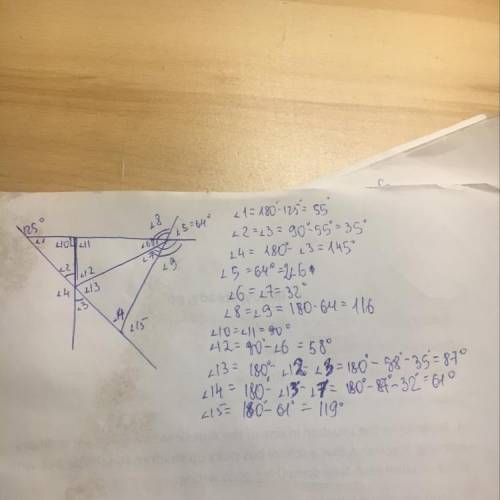 125°
∠1
∠10 ∠11
∠8
∠5=64°
∠6
∠7
∠9
∠2
∠12
∠4
∠13
∠3
∠14
∠15
∠1=180°-125°=55°
∠2=∠3=90°-55°=35°
∠4=180°-∠3=145°
∠5=64°=2∠6
∠6=∠7=32°
∠8=∠9=180-64=116
∠10=∠11=90°
∠12=90°-∠6=58°
∠13=180°-∠12-∠3=180°-58°-35°=87°
∠14=180°-∠13-∠7=180°-87°-32°=61°
∠15=180°-61°=119°